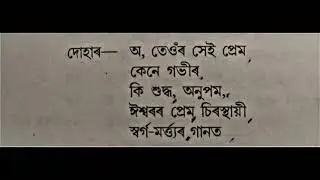 দোহাৰ— অ, তেওঁৰ সেই প্ৰেম,
কেনে গভীৰ
কি শুদ্ধ, অনুপম,
ঈশ্বৰৰ প্ৰেম চিৰস্থায়ী
স্বৰ্গ-মৰ্ত্ত্যৰ গানত